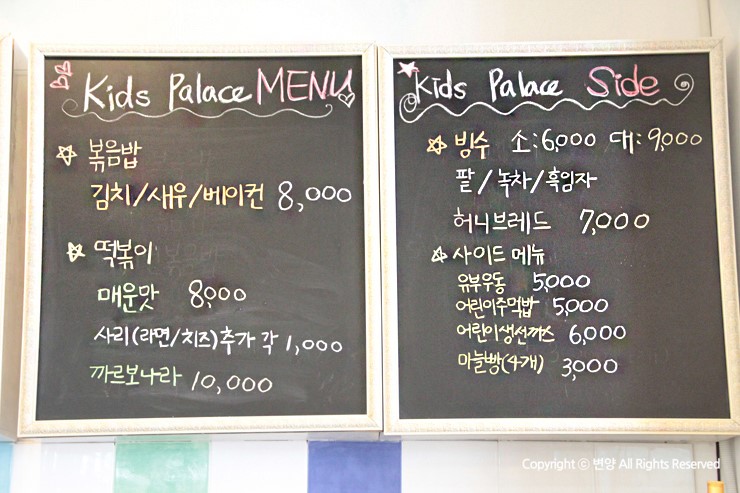 Kids Palace MENU
볶음밥
김치/새우/베이컨 8,000
떡볶이
매운맛 8,000
사리(라면/치즈)추가 각 1,000
까르보나라 10,000
Kids Palace Side
빙수 소:6,000 대:9,000
팥/녹차/흑임자
허니브레드 7,000
사이드 메뉴
유부우동 5,000
어린이주먹밥 5,000
어린이생선까스 6,000
마늘빵(4개) 3,000
Copyright ⓒ 변양 All Rights Reserved